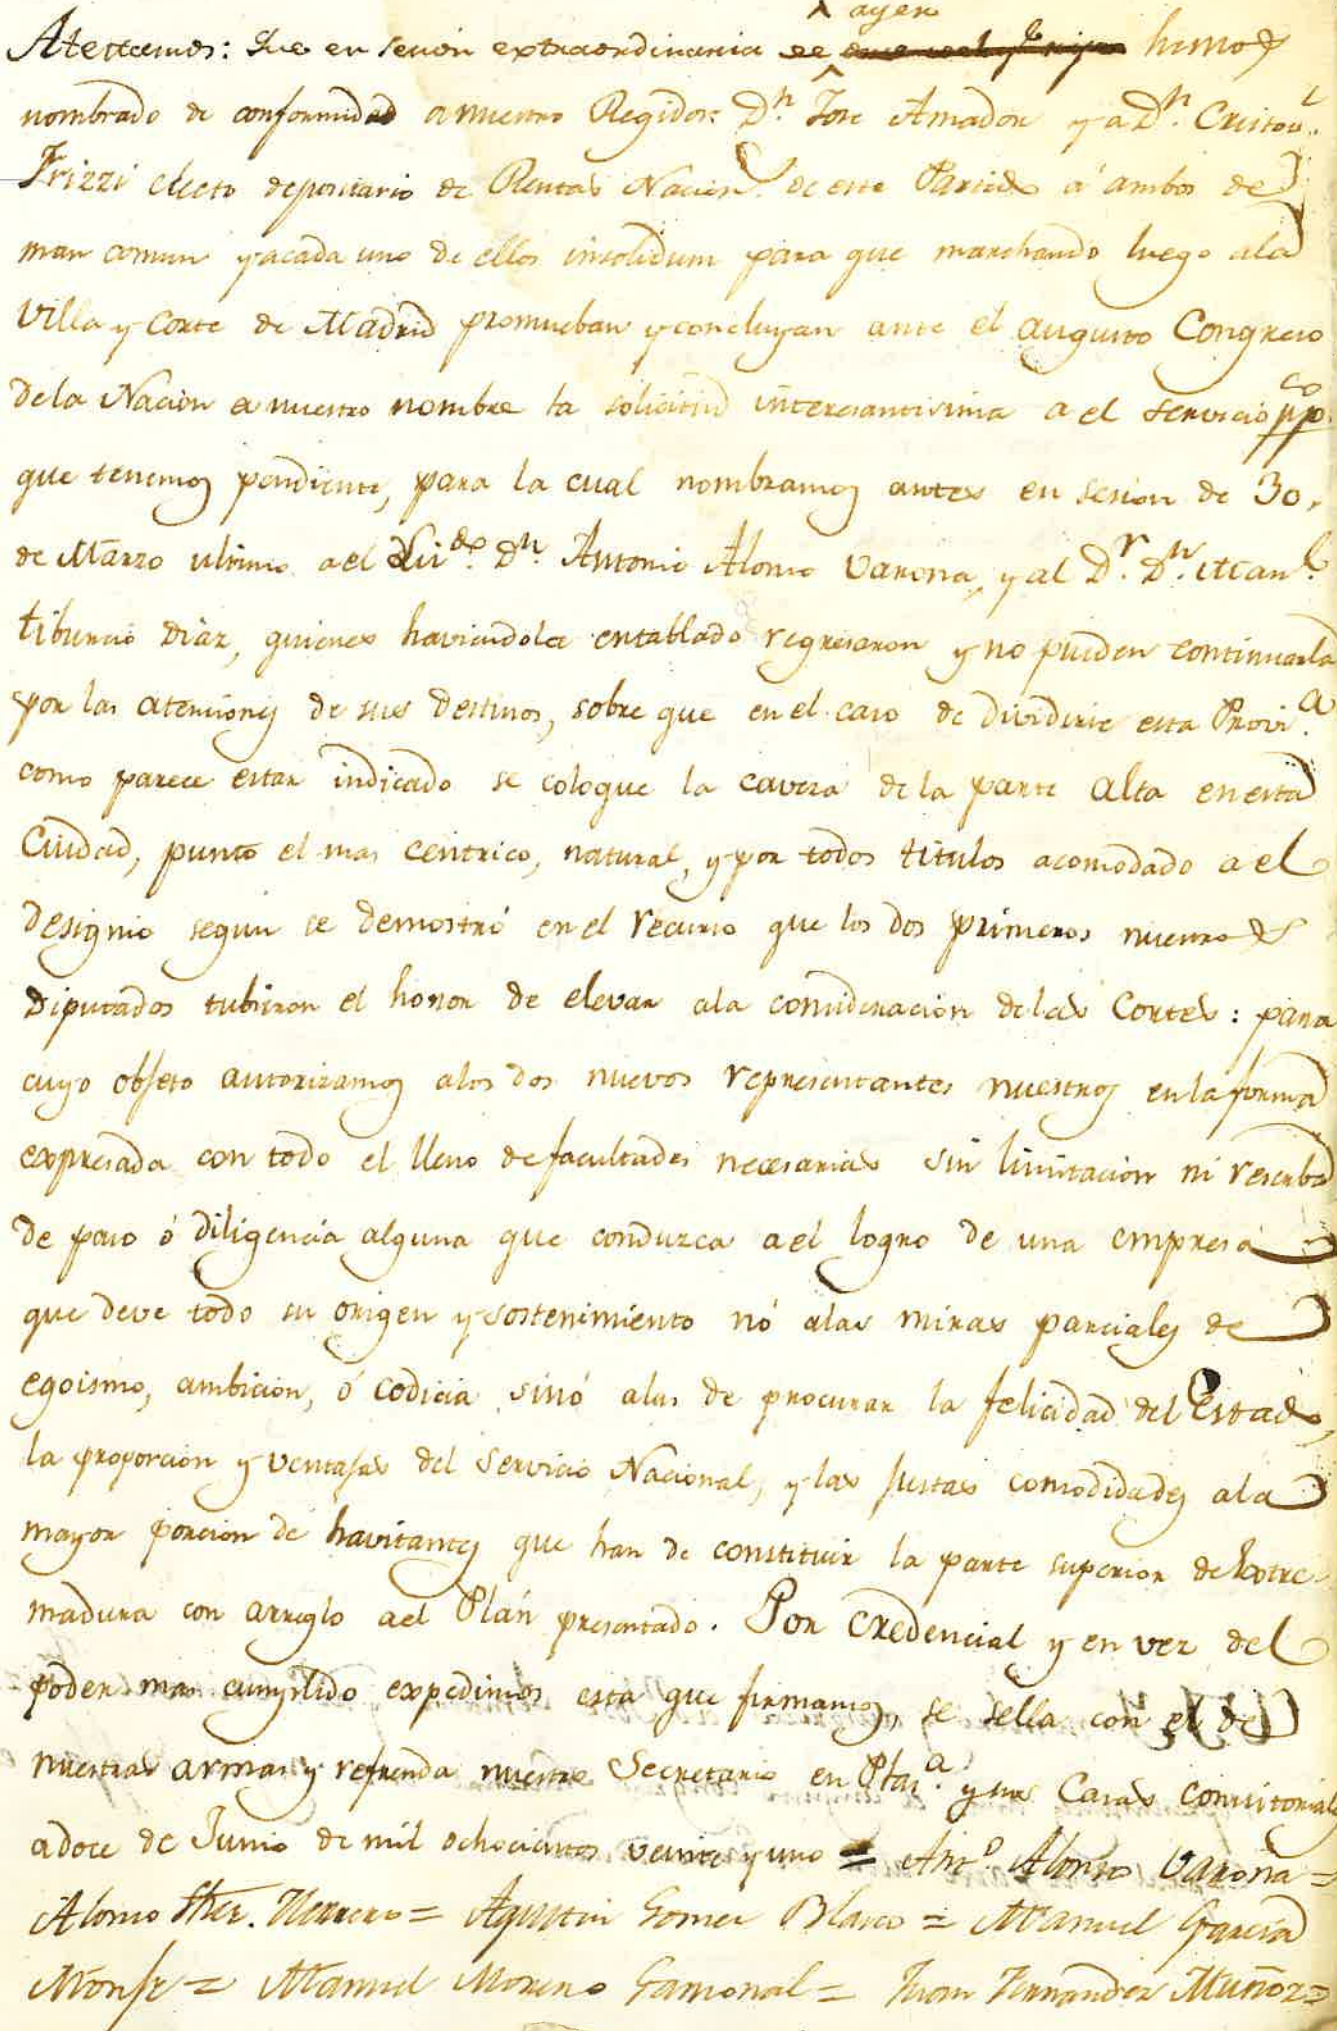 ayer
Atestamos: Que en sesion extraordinaria de hemos
nombrado de conformidad a nuestro Regidor Dn. Jose Amador y a Dn. Cristoul.
Frizzi electo depositario de Rentas Nacion.s de este Partido á ambos de
man comun y acada uno de ellos insolidum para que marchando luego ala
Villa y Corte de Madrid promueban y concluyan ante el augusto Congreso
dela Nación a nuestro nombre la solicitud interesantisima a el servicio ppco.
que tenemos pendiente, para la cual nombramos antes en sesion de 30,
de Marzo ultimo a el Licdo. Dn. Antonio Alonso Varona, y al Dr. Dn. Manl.
tiburcio Diaz, quienes haviendola entablado regresaron y no pueden continuarla
por las atenciones de sus destinos, sobre que en el caso de dividirse esta Provi.a
como parece estar indicado se coloque la caveza de la parte alta en esta
Ciudad, punto el mas centrico, natural, y por todos titulos acomodado a el
designio segun se demostró en el recurso que los dos primeros nuestros
Diputados tubieron el honor de elevar ala consideración delas Cortes: para
cuyo objeto autorizamos alos dos nuevos representantes nuestros enla forma
expresada con todo el lleno de facultades necesarias sin limitación ni reserba
de paso ó diligencia alguna que conduzca a el logro de una empresa
que deve todo su origen y sostenimiento nó alas miras parciales de
egoismo, ambicion, ó codicia sinó alas de procurar la felicidad del Estado,
la proporcion y ventajas del servicio Nacional, y las justas comodidades ala
mayor porcion de havitantes que han de constituir la parte superior de Extre-
madura con arreglo a el Plán presentado. Por credencial y en vez del
poder mas cumplido expedimos esta que firmamos, se sella con el de
nuestras armas y refrenda nuestro Secretario en Plas.a y sus Casas consistoriales
adoce de Junio de mil ochocientos veinte y uno = Anto. Alonso Varona =
Alonso Herrero = Agustin Gomez Blasco = Manuel Garcia
Monje = Manuel Moreno Gamonal = Juan Fernandez Muñoz =